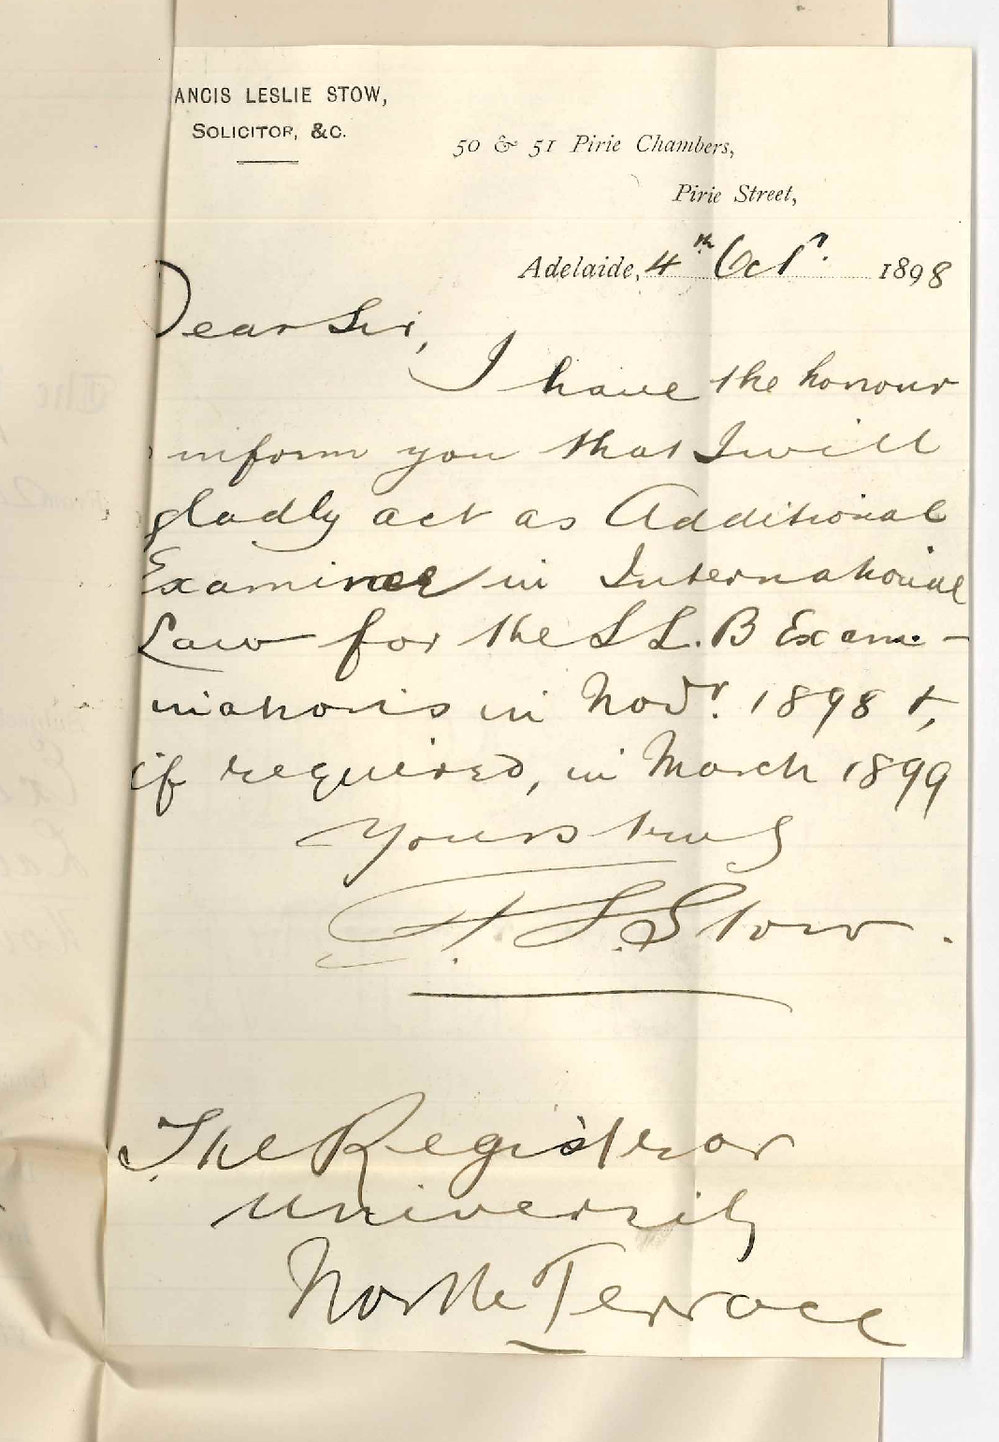 ANCIS LESLIE STOW,
SOLICITOR, &C.
50 & 51 Pirie Chambers,
Pirie Street,
Adelaide, 4th Oct. 1898
Dear Sir,
I have the honour
inform you that I will
gladly act as Additional
Examiner in International
Law for the LL.B Exami-
nations in Novr. 1898 &,
if required, in March 1899
Yours truly
F. L. Stow.
The Registrar
University
North Terrace